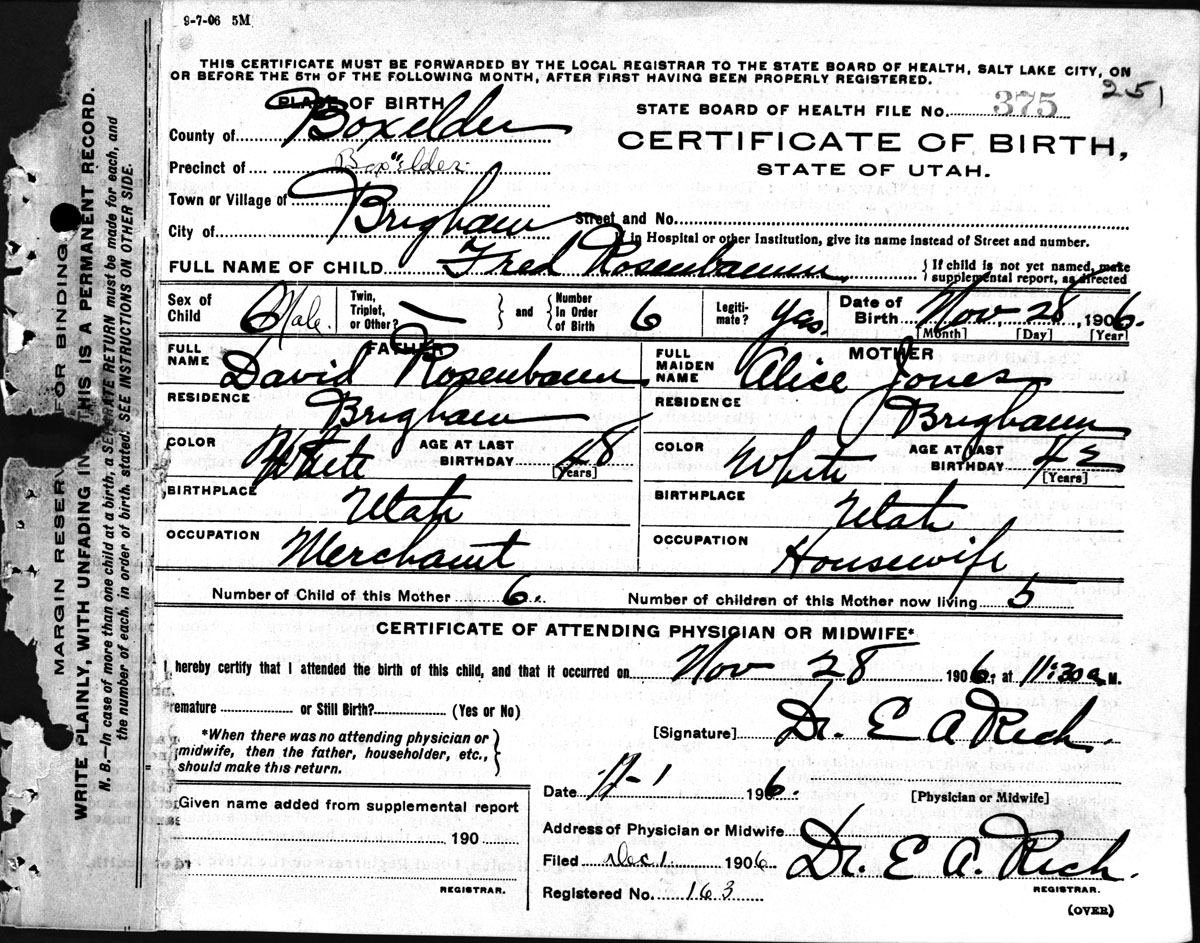 9-7-06 5M
THIS CERTIFICATE MUST BE FORWARDED BY THE LOCAL REGISTRAR TO THE STATE BOARD OF HEALTH, SALT LAKE CITY, ON
OR BEFORE THE 5TH OF THE FOLLOWING MONTH, AFTER FIRST HAVING BEEN PROPERLY REGISTERED.
251
PLACE OF BIRTH
STATE BOARD OF HEALTH FILE No. 375
County of Boxelder
CERTIFICATE OF BIRTH,
STATE OF UTAH.
Precinct of Box Elder
Town or Village of
City of Brigham
Street and No.
If in Hospital or other Institution, give its name instead of Street and number.
FULL NAME OF CHILD Fred Rosenbaum
{ If child is not yet named, make
supplemental report, as directed
Sex of Child Male
Twin, Triplet, or Other? —
and
Number In Order of Birth 6
Legitimate? Yas.
Date of Birth Nov 28, 1906.
[Month] [Day] [Year]
FATHER
FULL NAME David Rosenbaum
RESIDENCE Brigham
COLOR White
AGE AT LAST BIRTHDAY 48
[Years]
BIRTHPLACE Utah
OCCUPATION Merchant
MOTHER
FULL MAIDEN NAME Alice Jones
RESIDENCE Brigham
COLOR White
AGE AT LAST BIRTHDAY 42
[Years]
BIRTHPLACE Utah
OCCUPATION Housewife
Number of Child of this Mother 6.
Number of children of this Mother now living 5
CERTIFICATE OF ATTENDING PHYSICIAN OR MIDWIFE*
I hereby certify that I attended the birth of this child, and that it occurred on Nov 28 1906. at 11:30 a. M.
Premature or Still Birth? (Yes or No)
*When there was no attending physician or
midwife, then the father, householder, etc.,
should make this return.
[Signature] Dr. E A Rich.
Date 1906.
[Physician or Midwife]
Given name added from supplemental report
190
REGISTRAR.
Address of Physician or Midwife
Filed Dec 1 1906
Dr. E A. Rich.
REGISTRAR.
Registered No. 163
(OVER)
MARGIN RESERV FOR BINDING
WRITE PLAINLY, WITH UNFADING IN THIS IS A PERMANENT RECORD.
N. B.—In case of more than one child at a birth, a SEPARATE RETURN must be made for each, and
the number of each, in order of birth, stated. SEE INSTRUCTIONS ON OTHER SIDE.